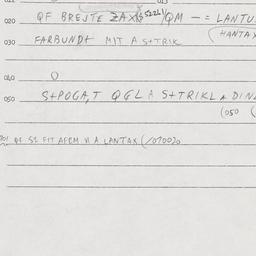 020 QF BREJTE ZAX 522L1/QM — = LANTU
(HANTAX
030 FARBUNDT MIT A S+TRIK
040 O
050 S+POGA,T QGL A S+TRIKL A DINA
(050
QF SZ FIT AFCM VI A LANTAX (/070020